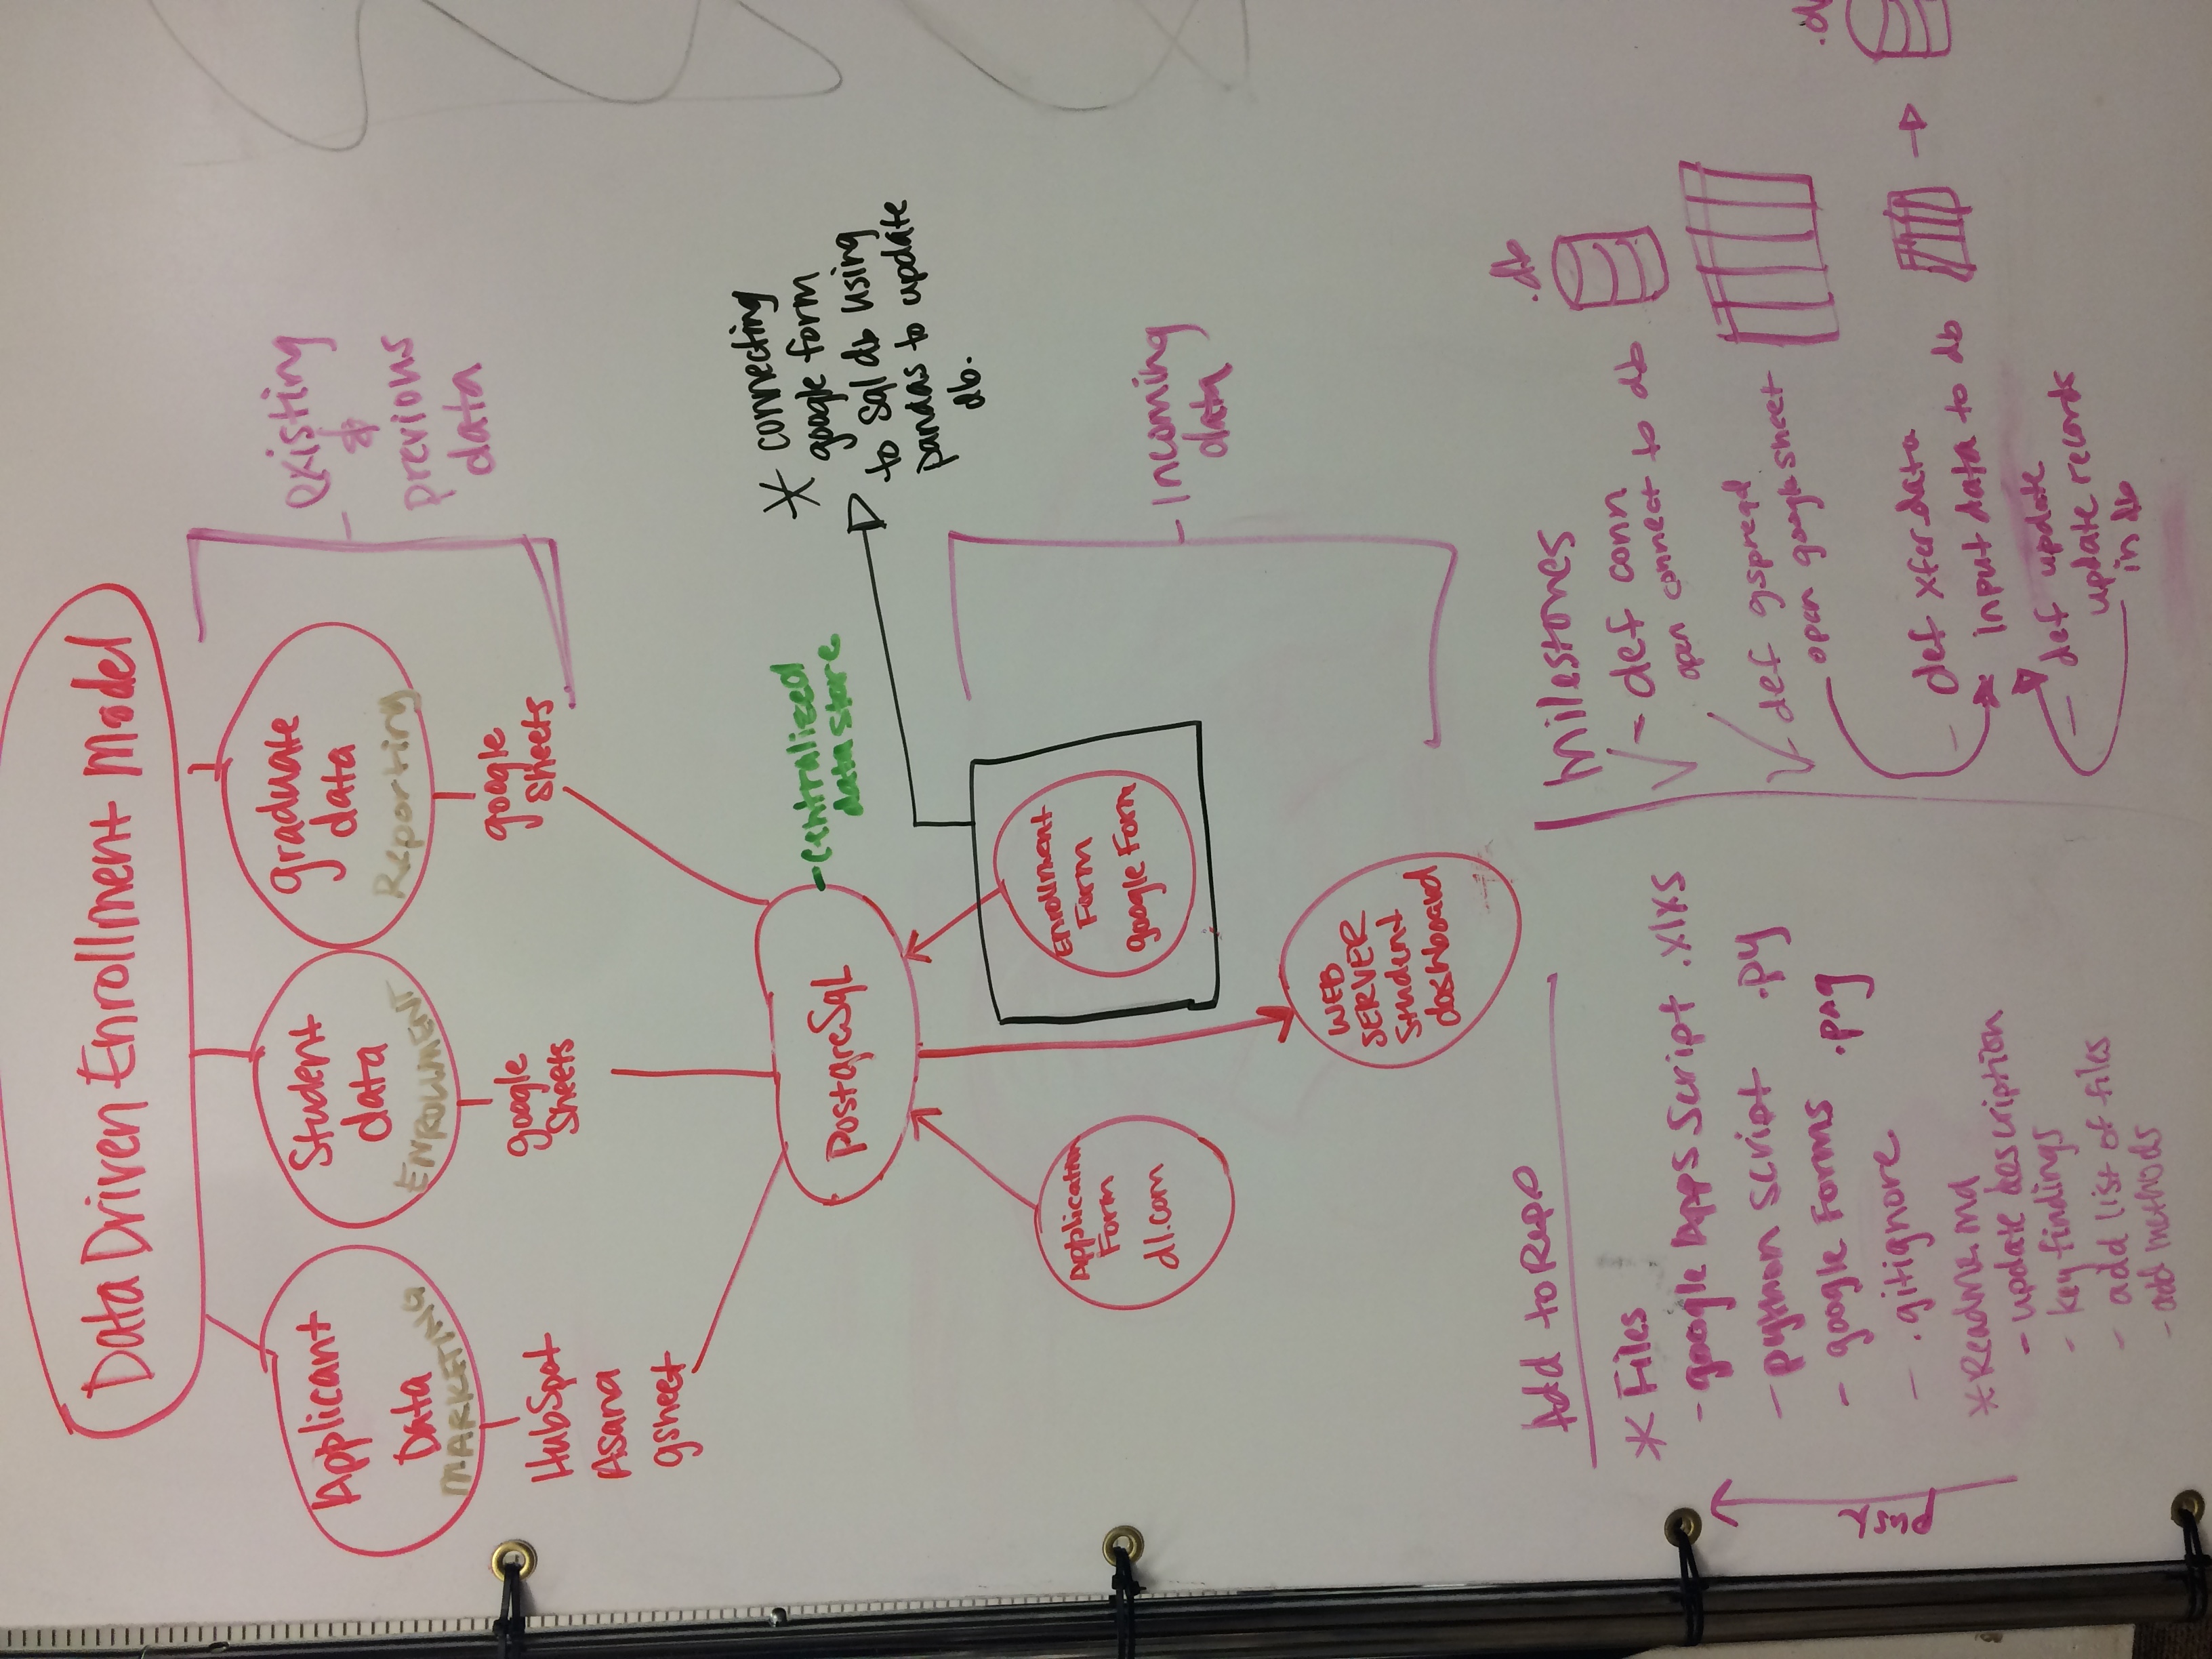 Data Driven Enrollment Model
Applicant
Data
MARKETING
Student
data
ENROLLMENT
graduate
data
Reporting
existing
&
previous
data
HubSpot
Asana
gsheet
google
Sheets
google
sheets
PostgreSqL
- Centralized
data store
* connecting
google form
to Sql db using
pandas to update
db.
Application
Form
dl.com
Enrollment
Form
google Form
Incoming
data
WEB
SERVER
Student
dashboard
Add to Repo
* Files
- google Apps Script .xlxs
- python script .py
- google Forms .png
- .gitignore
* Readme.md
- update description
- key findings
- add list of files
- add methods
push
Milestones
✓ - def conn
open connect to db
.db
✓ - def gspread
open google sheet
- def xfer_data
input data to db
- def update
update records
in db